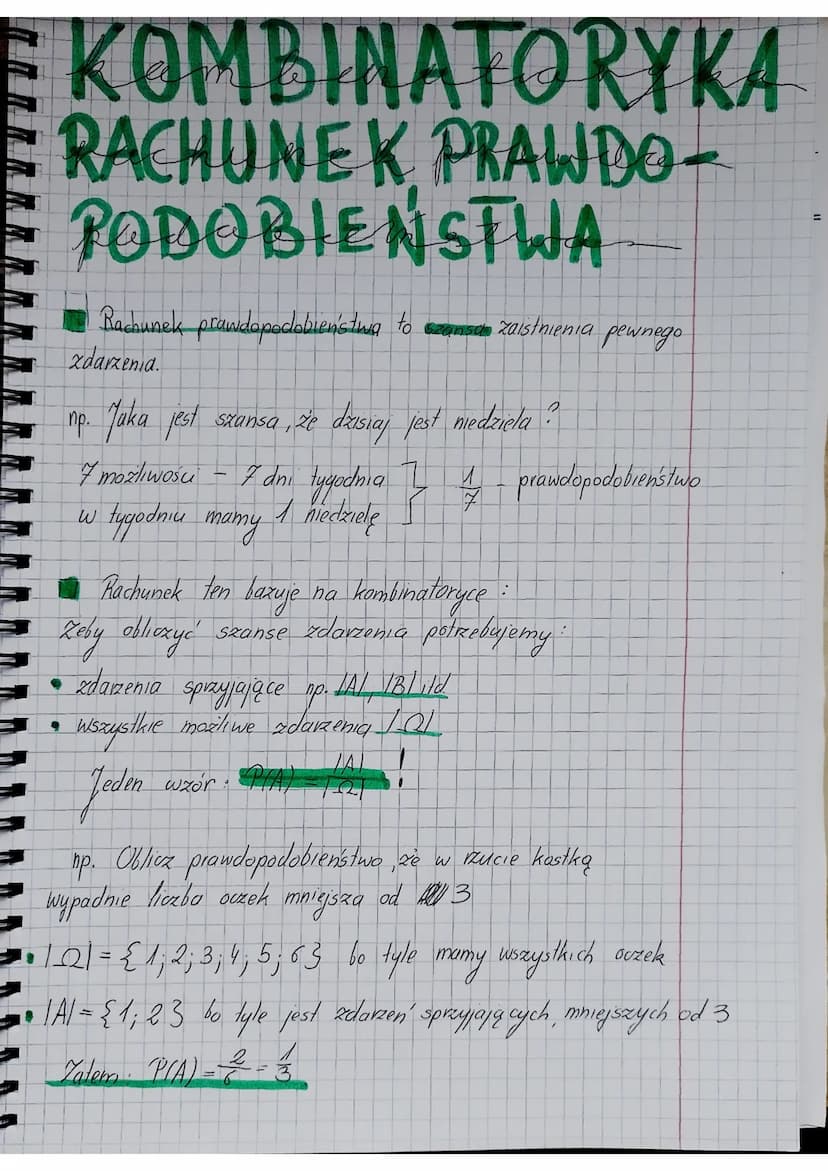 KOMBINATORYKA
kombinatoryka
RACHUNEK PRAWDO-
rachunek prawdo-
PODOBIEŃSTWA
podobieństwa
Rachunek prawdopodobieństwa to szansa zaistnienia pewnego
zdarzenia.
np. Jaka jest szansa, że dzisiaj jest niedziela?
7 możliwości - 7 dni tygodnia } 1/7 - prawdopodobieństwo
w tygodniu mamy 1 niedzielę
Rachunek ten bazuje na kombinatoryce:
Żeby obliczyć szanse zdarzenia potrzebujemy:
• zdarzenia sprzyjające np. |A|, |B| itd
• wszystkie możliwe zdarzenia |Ω|
Jeden wzór: P(A) = |A|/|Ω| !
np. Oblicz prawdopodobieństwo, że w rzucie kostką
wypadnie liczba oczek mniejsza od 3
• |Ω| = {1; 2; 3; 4; 5; 6} bo tyle mamy wszystkich oczek
• |A| = {1; 2} bo tyle jest zdarzeń sprzyjających, mniejszych od 3
Zatem: P(A) = 2/6 = 1/3